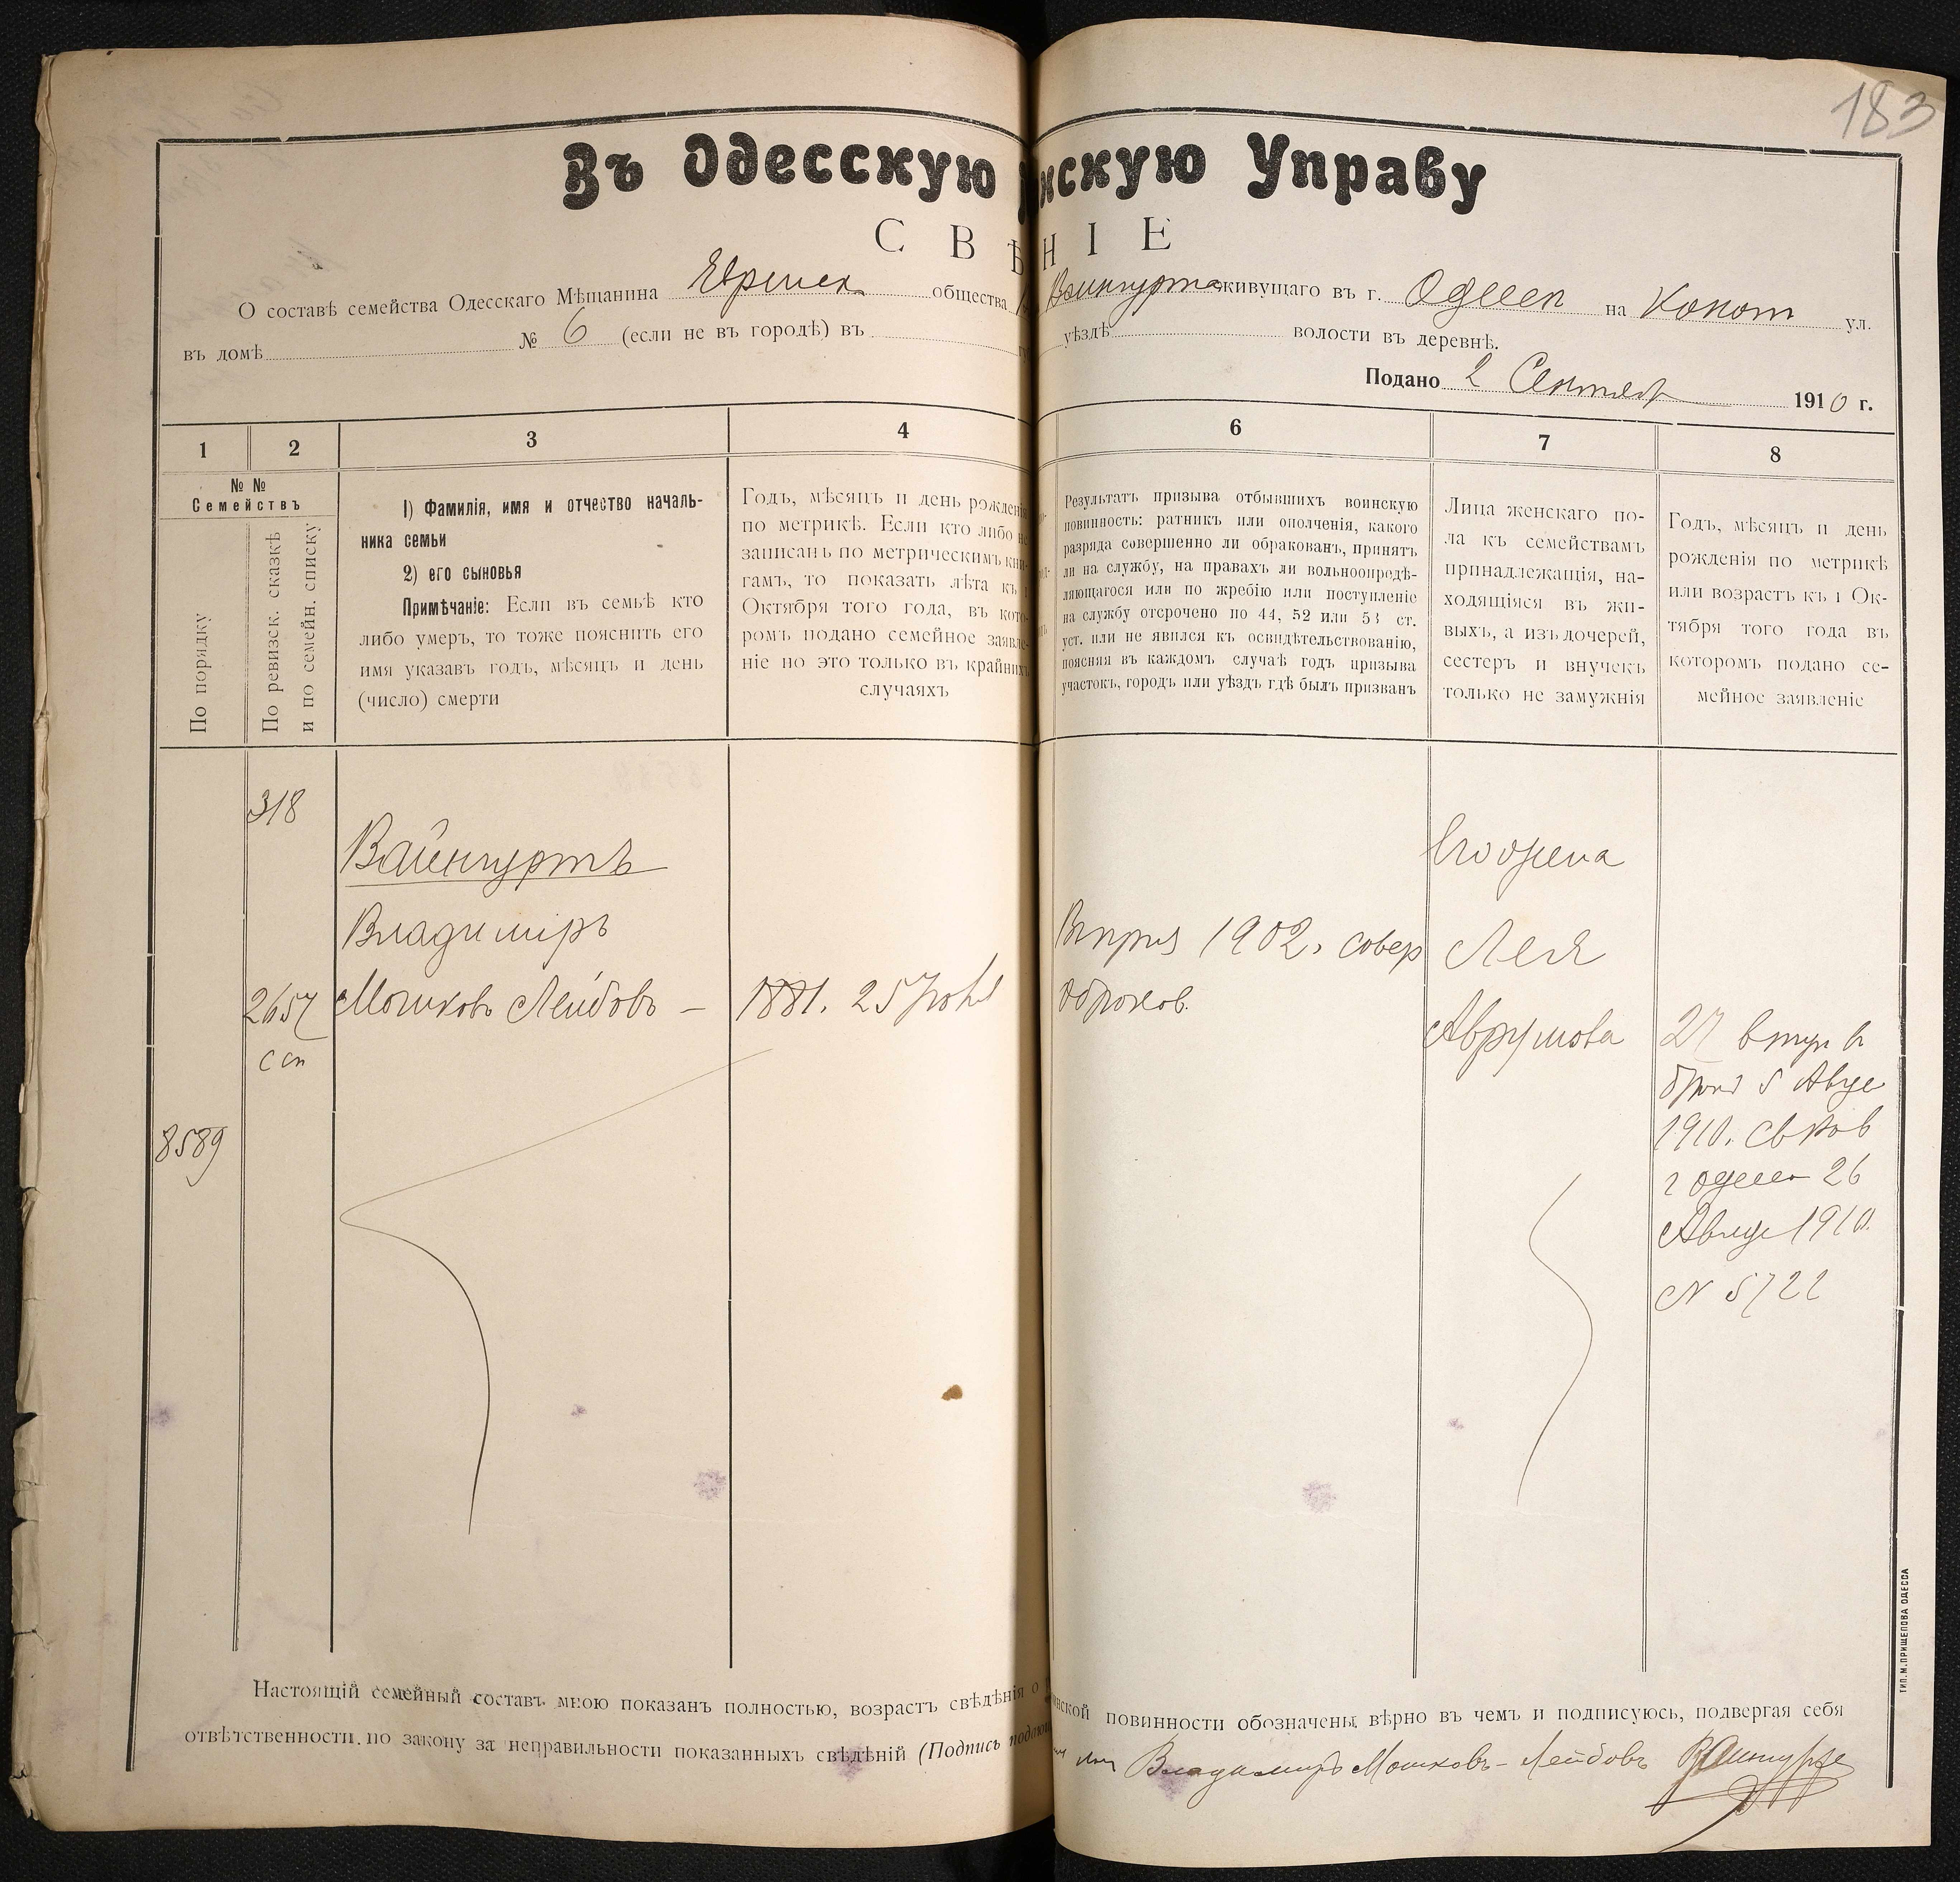 183
Въ Одесскую нскую Управу
СВѢНІЕ
О составѣ семейства Одесскаго Мѣщанина общества Вайнгурта живущаго въ г. Одессѣ на ул.
въ домѣ № 6 (если не въ городѣ) въ уѣздѣ волости въ деревнѣ.
Подано 2 Сентяб 1910 г.
1 2 3 4 6 7 8
№ №
Семействъ
По порядку
По ревизск. сказкѣ
и по семейн. списку
1) Фамилія, имя и отчество началь-
ника семьи
2) его сыновья
Примѣчаніе: Если въ семьѣ кто
либо умеръ, то тоже пояснить его
имя указавъ годъ, мѣсяцъ и день
(число) смерти
Годъ, мѣсяцъ и день рожденія
по метрикѣ. Если кто либо не
записанъ по метрическимъ кни-
гамъ, то показать лѣта къ 1
Октября того года, въ кото-
ромъ подано семейное заявле-
ніе но это только въ крайнихъ
случаяхъ
Результатъ призыва отбывшихъ воинскую
повинность: ратникъ или ополченія, какого
разряда совершенно ли обракованъ, принятъ
ли на службу, на правахъ ли вольноопредѣ-
ляющагося или по жребію или поступленіе
на службу отсрочено по 44, 52 или 53 ст.
уст. или не явился къ освидѣтельствованію,
поясняя въ каждомъ случаѣ годъ призыва
участокъ, городъ или уѣздъ гдѣ былъ призванъ
Лица женскаго по-
ла къ семействамъ
принадлежащія, на-
ходящіяся въ жи-
выхъ, а изъ дочерей,
сестеръ и внучекъ
только не замужнія
Годъ, мѣсяцъ и день
рожденія по метрикѣ
или возрастъ къ 1 Ок-
тября того года въ
которомъ подано се-
мейное заявленіе
318
Вайнгуртъ
Владиміръ
2657 Мошковъ Лейбовъ – 1881. 25
с сп
8589
1902. совер
обраков.
Его жена
Лея
Аврумова
27 вступ в
брак 5 Авгус
1910.
г Одесс 26
Август 1910.
N 5722
Настоящій семейный составъ мною показанъ полностью, возрастъ свѣдѣнія о нской повинности обозначены вѣрно въ чемъ и подписуюсь, подвергая себя
отвѣтственности по закону за неправильности показанныхъ свѣдѣній (Подпись подаю Владиміръ Мошковъ-Лейбовъ Вайнгурт
ТИП. М. ПРИЩЕПОВА ОДЕССА